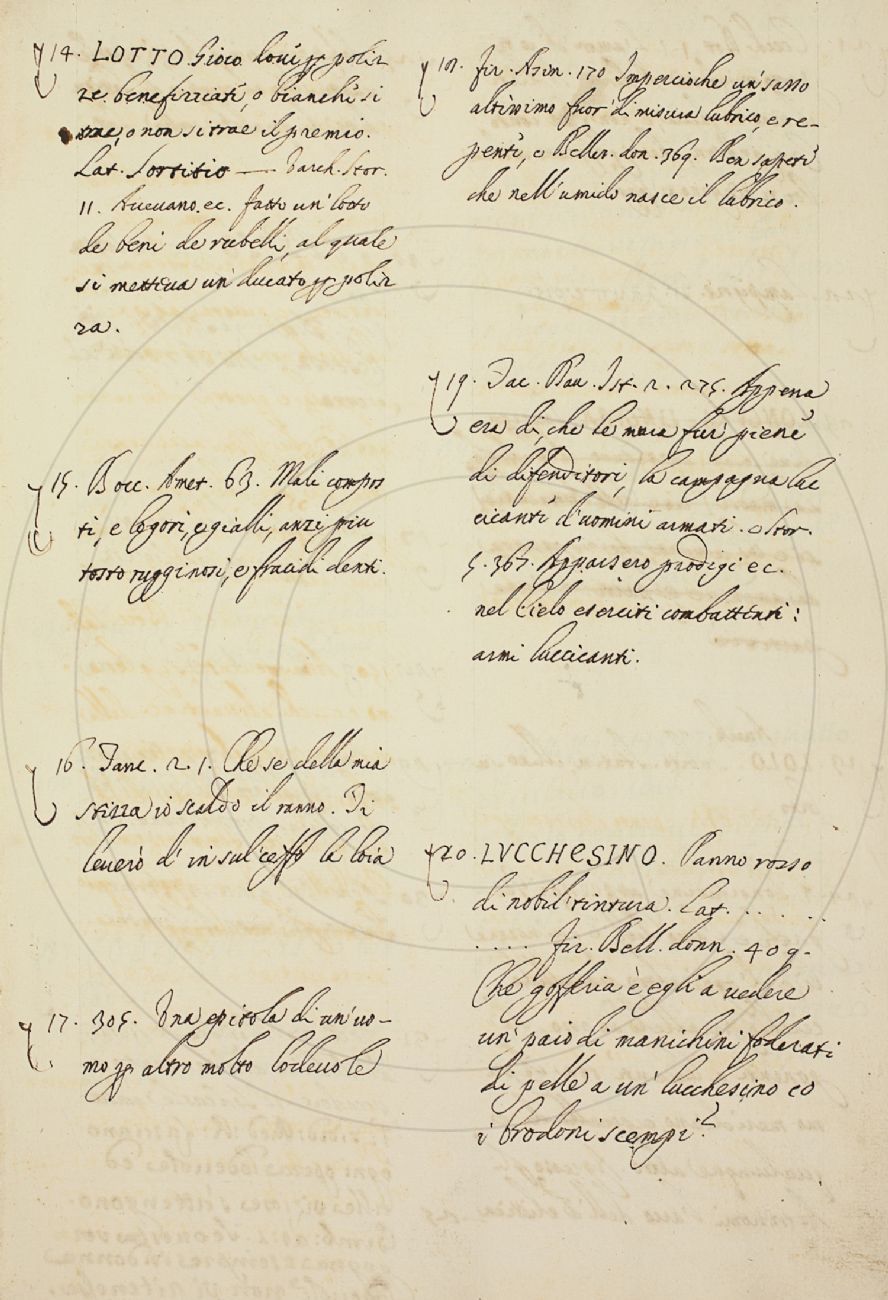 14. LOTTO. Gioco. Lovi p poliz
ze benefizziati, o bianchi si
trae, o non si trae il premio.
Lat. Sortitio — Varch. Stor.
11. Avevano. ec. fatto un' lotto
de beni de rubelli, al quale
si metteva un' ducato p poliz
za.
15. Bocc. Amet. 63. Mali compos
ti, e logori, e gialli, anzi piu
tosto rugginosi, e fracidi denti.
16. Tanc. 2. 1. Che se della mia
stizza io scaldo il ranno. Ti
leverò di in sul ceffo la loia
17. 305. Una epistola di un' uo-
mo p altro molto lodevole
fir. Asin. 170 Impercioche un' sasso
altissimo fuor' di misura lubrico, e re-
penti, e Bellez. don. 369. Ben sapeti
che nell' umido nasce il lubrico.
19. Dav. Ist. 2. 275. Appena
era di, che le mura fur' piene
di difenditori, la campagna luc
cicanti d'uomini armati. e Stor.
5. 367. Apparsero prodigi ec.
nel Cielo eserciti combattenti:
armi luccicanti.
20. LVCCHESINO. Panno rosso
di nobil' tintura. Lat. . . . . .
. . . . . fir. Bell. donn. 409.
Che gofferia è egli a vedere
un' paio di manichini foderati
di pelle a un' lucchesino co
i brodoni scempi?